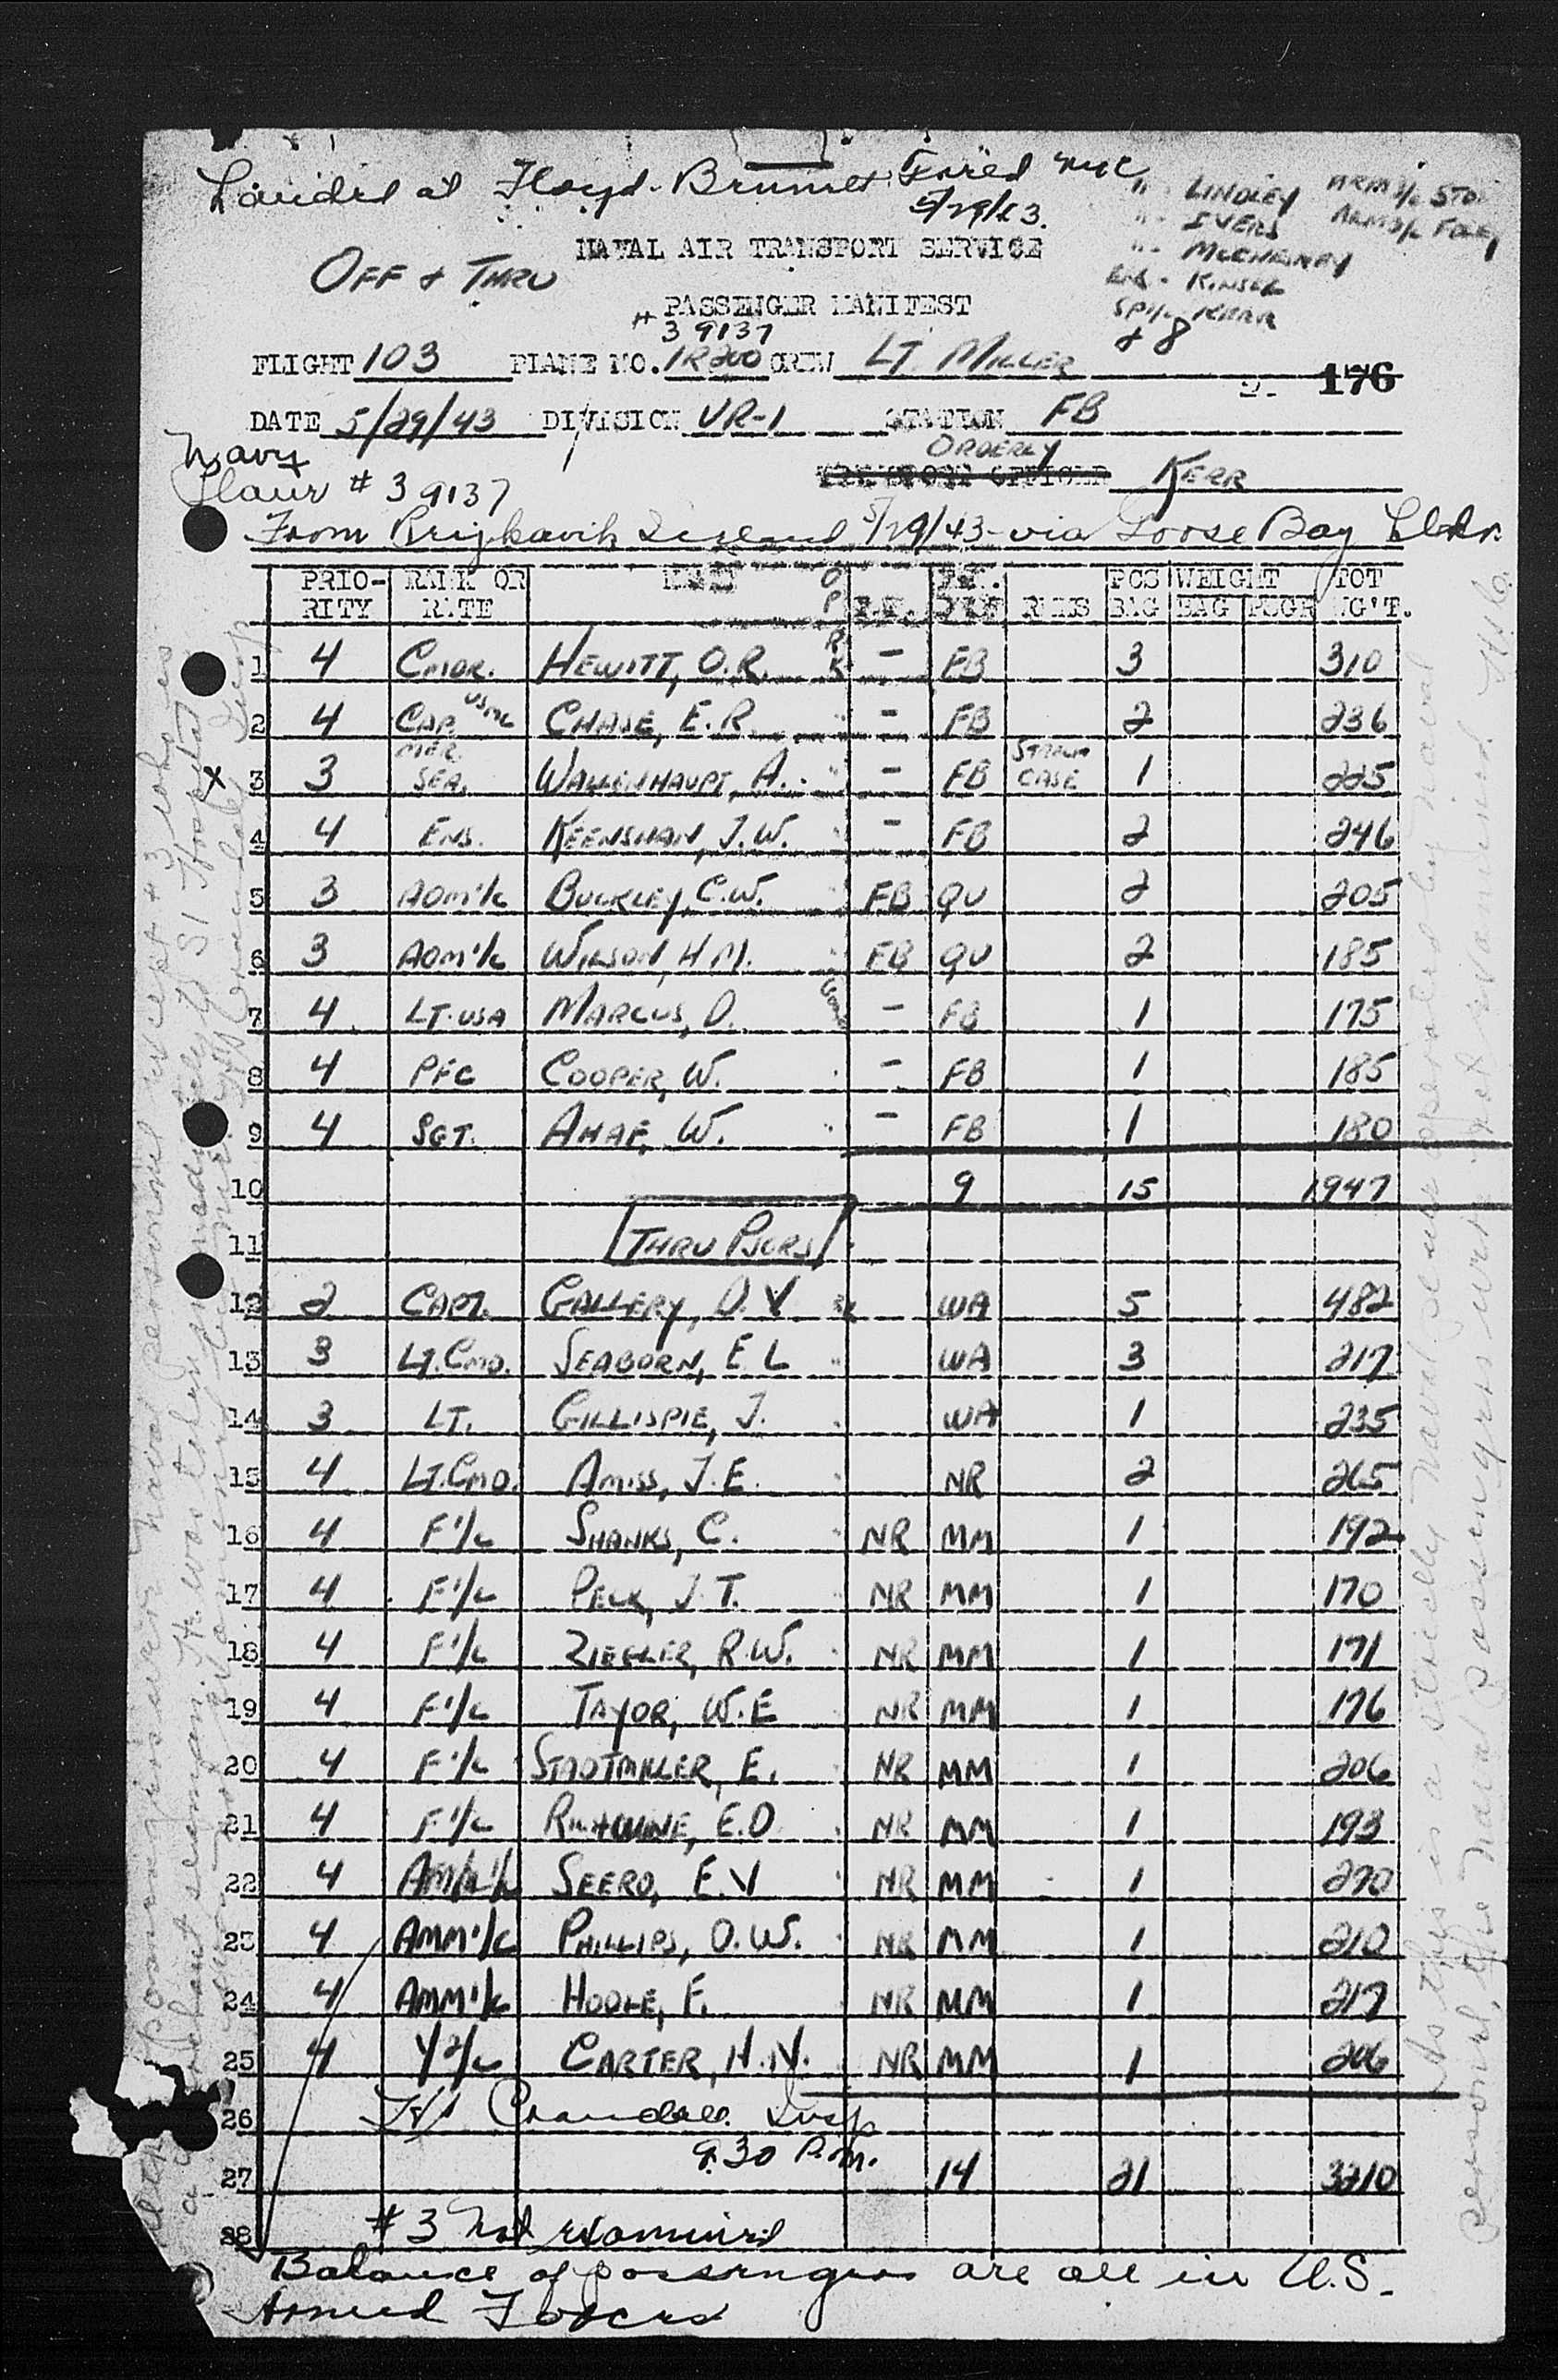 Landed at Floyd Brunet Field NYC
5/29/43.
" LINDLEY ARM3/c STO
" IVERS ARM3/c FOLEY
" McENERNEY
Ens - KINSEL
Sp1/c KERR
+ 8
NAVAL AIR TRANSPORT SERVICE
OFF & THRU
PASSENGER MANIFEST
# 39137
FLIGHT 103 PLANE NO. 1R200 CREW LT. MILLER
2. 176
DATE 5/29/43 DIVISION VR-1 STATION FB
Navy
ORDERLY
Plane # 39137
TRANSPORT OFFICER KERR
From Reigkavik Iceland 5/29/43 - via Goose Bay Lbdr.
PRIO-RITY RANK OR RATE NAME RMKS PCS BAG WEIGHT BAG PSGR TOT WG'T.
1 4 CMDR. HEWITT, O.R. RK - FB 3 310
2 4 CAP. USMC CHASE, E.R. " - FB 2 236
3 3 MER. SEA. WALLENHAUPT, A. " - FB STRAW CASE 1 225
4 4 ENS. KEENSHAN, J.W. " - FB 2 246
5 3 AOM1/c BUCKLEY, C.W. " FB QU 2 205
6 3 AOM1/c WILSON, H M. " FB QU 2 185
7 4 LT. USA MARCUS, D. - FB 1 175
8 4 PFC COOPER, W. - FB 1 185
9 4 SGT. AHAF, W. " - FB 1 180
10 9 15 1947
11 THRU PSGRS
12 2 CAPT. GALLERY, D. V RK WA 5 482
13 3 LT. CMD. SEABORN, E L " WA 3 217
14 3 LT. GILLISPIE, J. WA 1 235
15 4 LT. CMD. AMISS, J.E. NR 2 265
16 4 F1/c SHANKS, C. NR MM 1 192
17 4 F1/c PECK, J T. NR MM 1 170
18 4 F1/c ZIEGLER, R.W. NR MM 1 171
19 4 F1/c TAYOR, W.E NR MM 1 176
20 4 F1/c STADTMILLER, E. NR MM 1 206
21 4 F1/c E.D NR MM 1 193
22 4 SEERO, E.V NR MM 1 270
23 4 AMM1/c PHILLIPS, O.W. NR MM 1 210
24 4 AMM1/c HOOLE, F. NR MM 1 217
25 4 Y2/c CARTER, H.N. NR MM 1 206
26 Crandall Insp
9.30 P.m.
27 14 21 3210
#3 not examined
28
Balance of passengers are all in U.S.
Armed Forces
As this is a strictly naval plane operated by naval
personnel, the naval passengers were not examined.